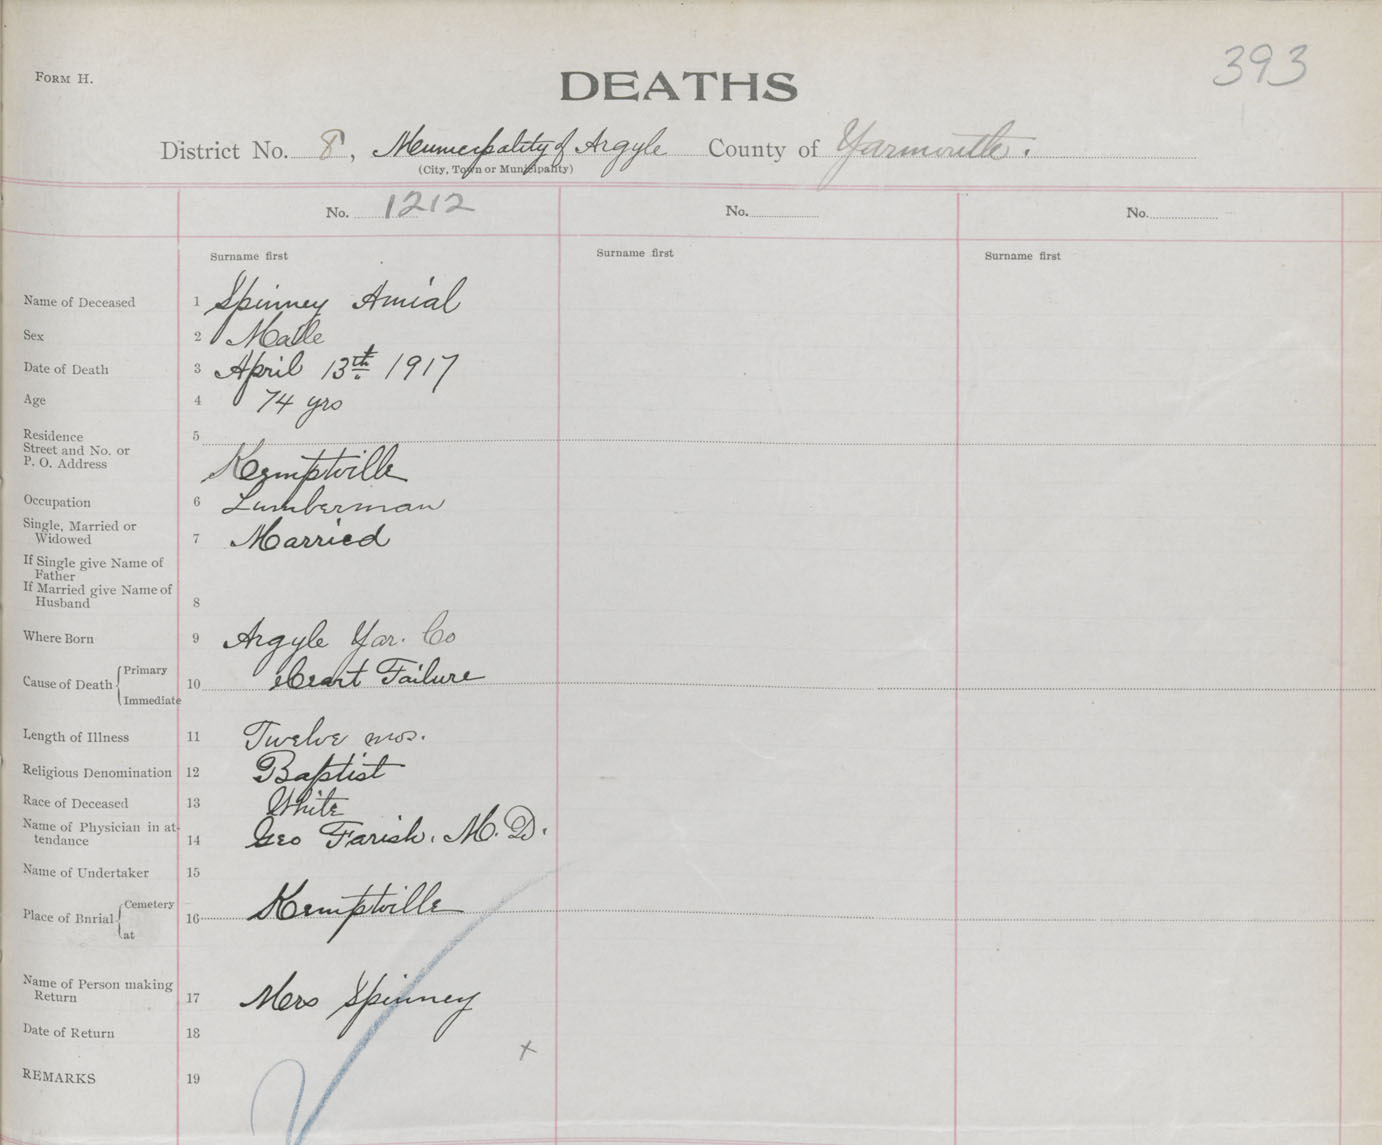 393
FORM H.
DEATHS
District No. 8, Municipality of Argyle County of Yarmouth.
(City, Town or Municipality)
No. 1212 No. No.
Surname first Surname first Surname first
Name of Deceased 1 Spinney Amial
Sex 2 Male
Date of Death 3 April 13th 1917
Age 4 74 yrs
Residence 5
Street and No. or
P. O. Address Kemptville
Occupation 6 Lumberman
Single, Married or
Widowed 7 Married
If Single give Name of
Father
If Married give Name of
Husband 8
Where Born 9 Argyle Yar. Co
Primary
Cause of Death 10 Heart Failure
Immediate
Length of Illness 11 Twelve mos.
Religious Denomination 12 Baptist
Race of Deceased 13 White
Name of Physician in at-
tendance 14 Geo Farish. M. D.
Name of Undertaker 15
Cemetery
Place of Bnrial 16 Kemptville
at
Name of Person making
Return 17 Mrs Spinney
Date of Return 18
x
REMARKS 19